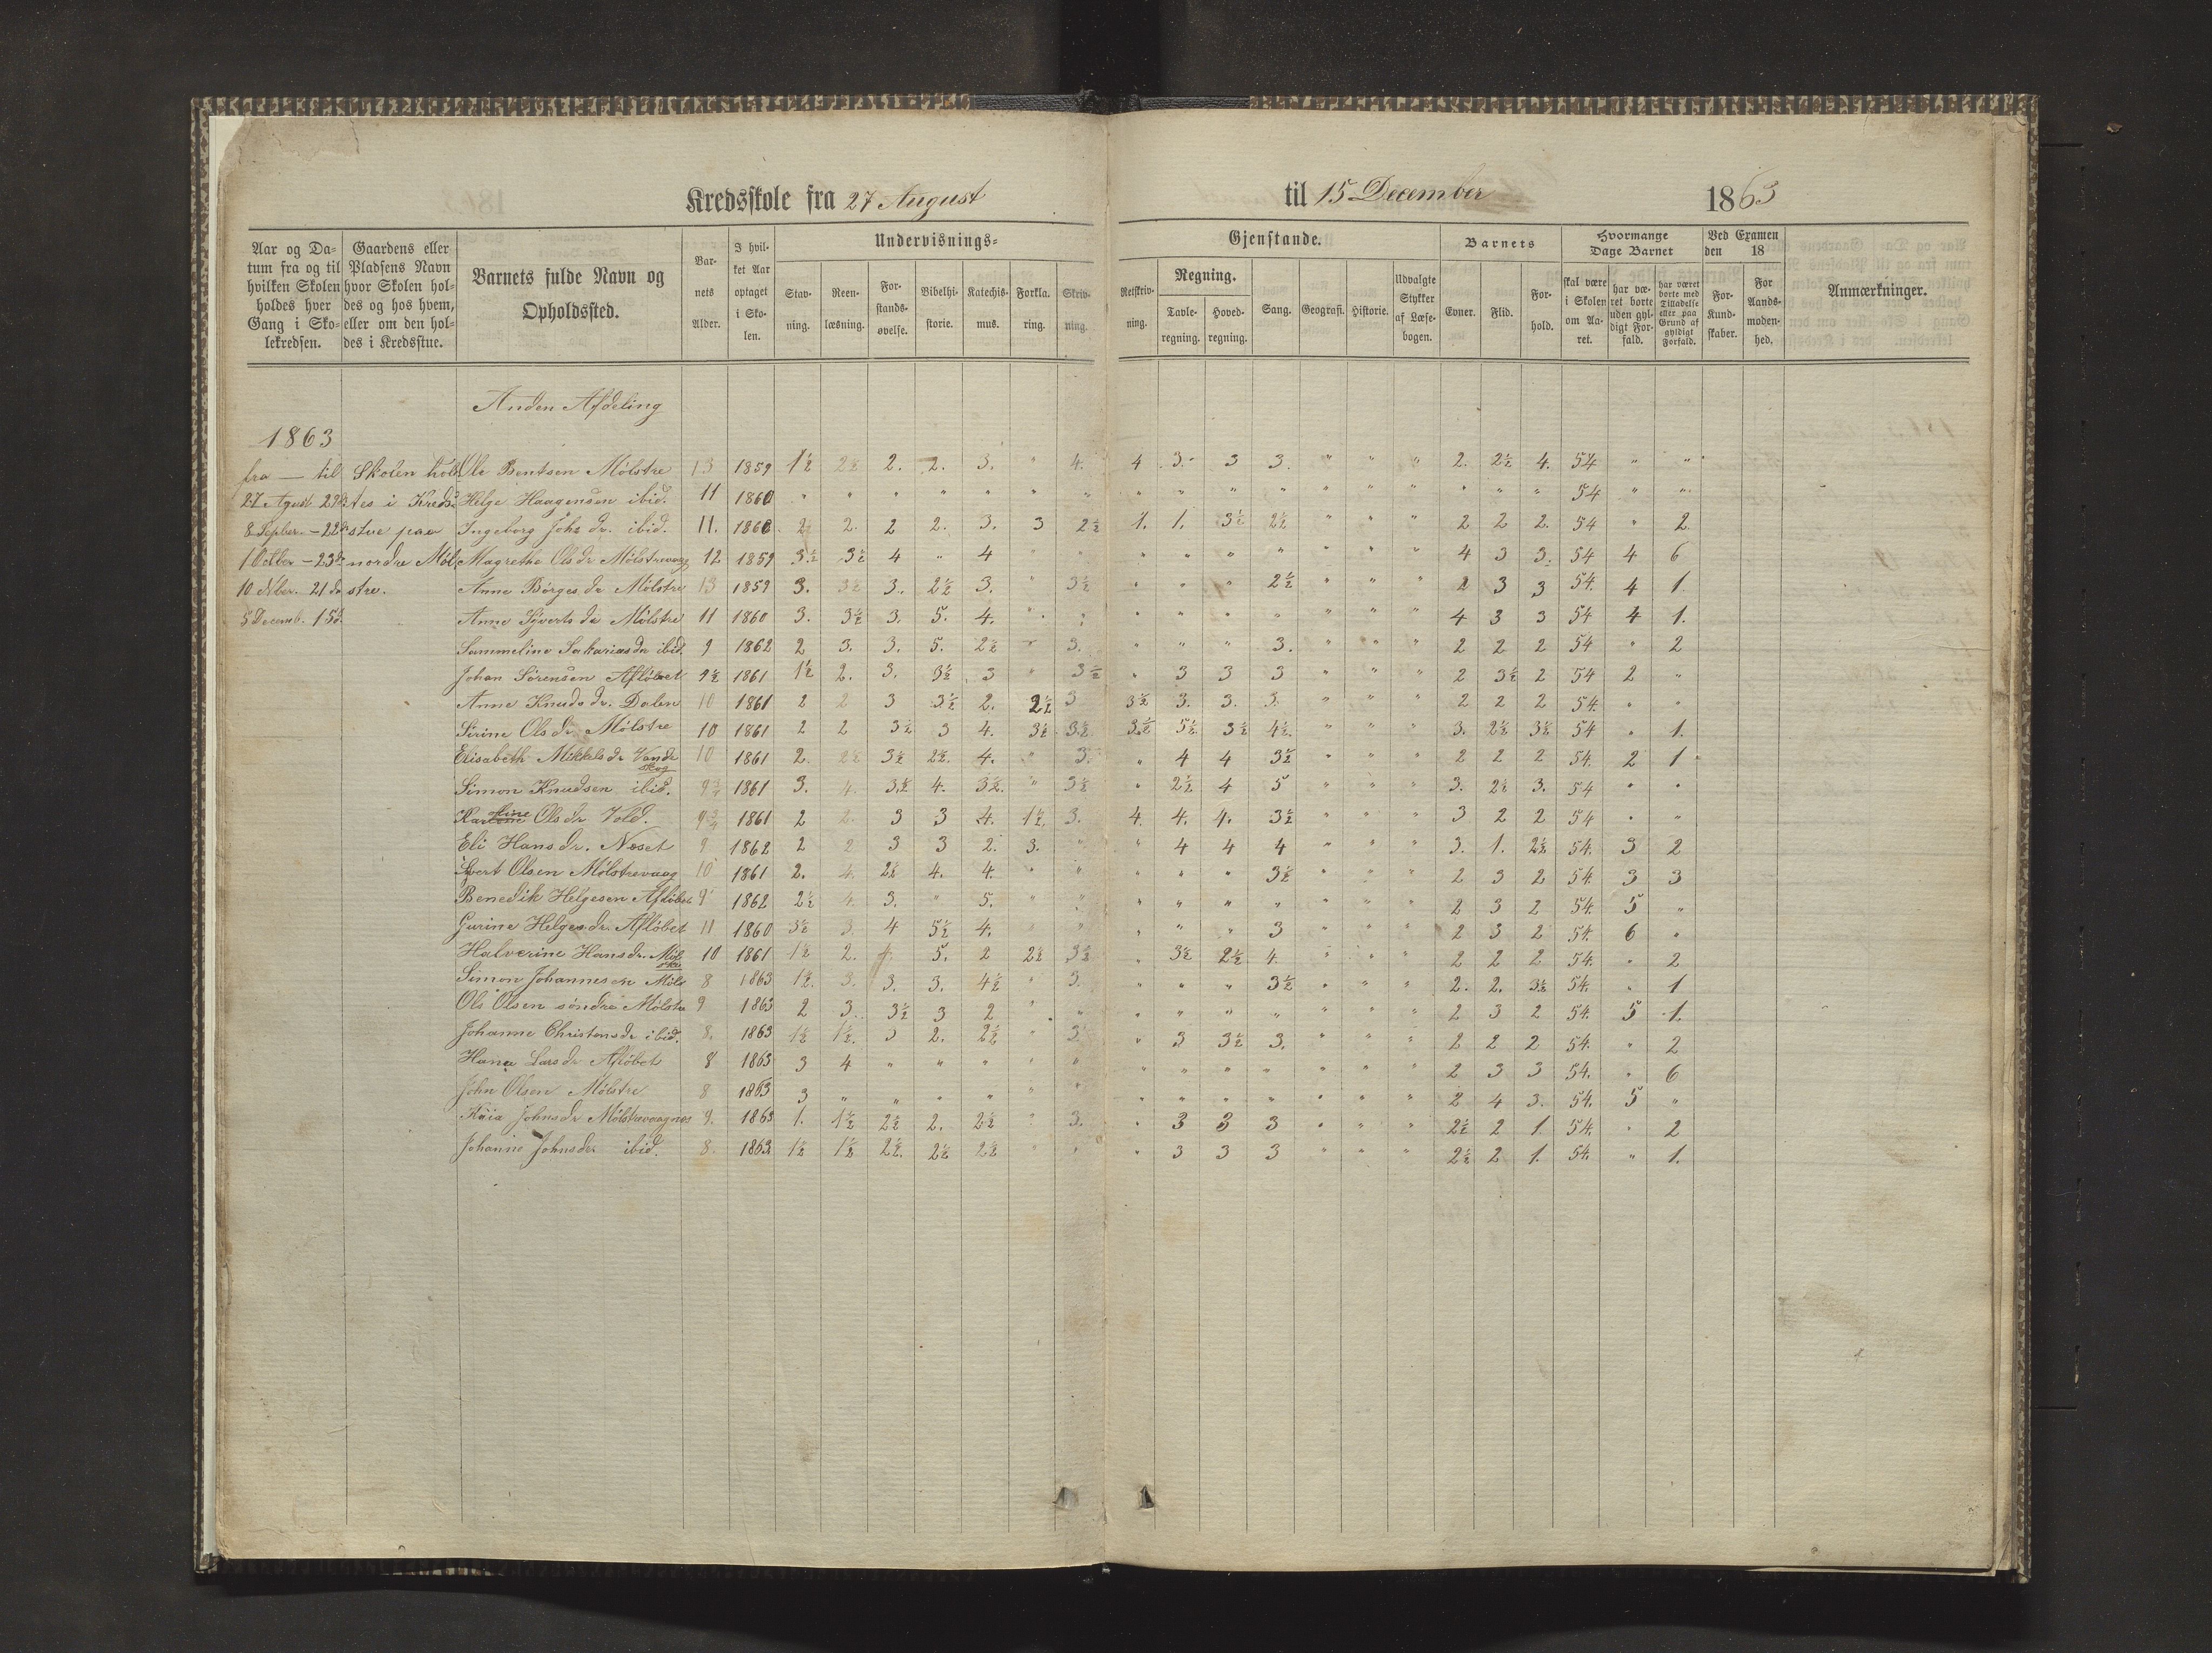 Kredsskole fra 27 August til 15 December 1863
Aar og Da- tum fra og til hvilken Skolen holdes hver Gang i Sko- lekredsen. | Gaardens eller Pladsens Navn hvor Skolen hol- des og hos hvem, eller om den hol- des i Kredsstue. | Barnets fulde Navn og Opholdssted. | Bar- nets Alder. | I hvil- ket Aar optaget i Sko- len. | Undervisnings= Gjenstande. | Barnets | Hvormange Dage Barnet | Ved Examen den 18 | Anmærkninger.
Stav- ning. | Reen- læsning. | For- stands- øvelse. | Bibelhi- storie. | Katechis- mus. | Forkla- ring. | Skriv- ning. | Retskriv- ning. | Regning. Tavle- regning. | Hoved- regning. | Sang. | Geografi. | Historie. | Udvalgte Stykker af Læse- bogen. | Evner. | Flid. | For- hold. | skal være i Skolen om Aa- ret. | har væ- ret borte uden gyl- digt For- fald. | har været borte med Tilladelse eller paa Grund af gyldigt Forfald. | For- Kund- skaber. | For Aands- moden- hed.
Anden Afdeling
1863
fra — til Skolen hol- Ole Bentsen Mølstre 13 1859 1½ 2½ 2. 2. 3. " 4. 4 3. 3 3. " " " 2. 2½ 4. 54 " "
27 August 29 des i Kreds- Helge Haagensen ibid. 11 1860 " " " " " " " " " " " " " " " " " 54 " "
8 Sepber. - 22 stue paa Ingeborg Johs dr. ibid. 11. 1860. 2½ 2. 2 2. 3. 3 2½ 1. 1. 3½ 2½ " " " 2 2 2. 54 " 2
1 October - 23 nordre Møl- Magrethe Olsdr Mølstrevaag 12 1859 3½ 3½ 4 " 4 " " " " " " " " " 4 3 3. 54 4 6
10 Nber. 21 do stre. Anne Børgesdr Mølstre 13 1859 3. 3½ 3. 2½ 3. " 3½ " " " 2½ " " " 2 3 3 54. 4 1.
5 Decemb. 15d. Anne Syverts dr Mølstre 11 1860 3. 3½ 3. 5. 4. " " " " " " " " " 4 3 3 54 4 1.
Sammeline Sakariasdr ibid. 9 1862 2 3. 3. 5. 2½ " 3. " " " 3. " " " 2 2 2 54 " 2
Johan Sörensen Afløbet 9½ 1861 1½ 2. 3. 3½ 3 " 3½ " 3 3 3 " " " 2 3½ 2 54 2 "
Anne Knudsdr. Dalen 10 1861 2 2 3 3½ 2. 2½ 3 3½ 3. 3. 3. " " " 2 2 2 54. " "
Sirine Olsdr. Mølstre 10 1861 2 2 3½ 3 4. 3½ 3½ 3½ 5½ 3½ 4½ " " " 3. 2½ 3½ 54 " 1.
Elisabeth Mikkelsdr Vandskog 10 1861 2. 2½ 3½ 2½ 4. " 3. " 4 4 3½ " " " 2 2 2 54. 2 1
Simon Knudsen ibid. 9¾ 1861 3. 4. 3½ 4. 3½ " 3½ " 2½ 4 5 " " " 3. 2½ 3. 54 " "
Karoline Olsdr Vold. 9¾ 1861 2 2. 3 3 4. 1½ 3. 4. 4. 4. 3½ " " " 3 2 2 54 " "
Eli Hansdr. Neset 9 1862 2 2 3 3 2. 3. " " 4 4 4 " " " 3. 1. 2½ 54. 3 2
Sivert Olsen Mølstrevaag 10 1861 2. 4. 2½ 4. 4. " " " " " 3½ " " " 2 3 2 54. 3 3
Benedik Helgesen Afløbet 9 1862 2½ 4. 3. " 5. " " " " " " " " " 2 3 2 54. 5 "
Gurine Helgesdr. Afløbet 11 1860 3½ 3. 4 5½ 4. " " " " " 3 " " " 2 3 2 54. 6 "
Halverine Hansdr. Mølstre 10 1861 1½ 2. 5. 2 2½ 3½ " 3½ 2½ 4. " " " 2 2 2 54. " 2
Simon Johannesen Møls 8 1863 1½. 3. 3. 3. 4½ " 3. " " " 3½ " " " 2. 2. 3½ 54. " 1
Ole Olsen söndre Mølstre 9 1863 2 3. 3½ 3 2 " " " " " " " " " 2 3 2 54. 5 1.
Johanne Christensdr ibid. 8. 1863 1½ 1½. 3 2. 2½ " 3. " 3 3½ 3. " " " 2 2 2 54. " 2
Hana Larsdr Afløbet 8 1863 3 4 " " " " " " " " " " " " 2 3 3 54. " 6
John Olsen Mølstre 8 1863 3 " " " " " " " " " " " " " 2 4 3. 54. 5 "
Kaia Johnsdr Mølstrevaagnes 9. 1863 1. 1½ 2½ 2. 2½ " 3. " 3 3 3 " " " 2½ 2 1 54. " 2
Johanne Johnsdr ibid. 8. 1863 1½ 1½ 2½. 2½ 2½ " " " 3 3 3 " " " 2½ 2 1. 54. " 1.